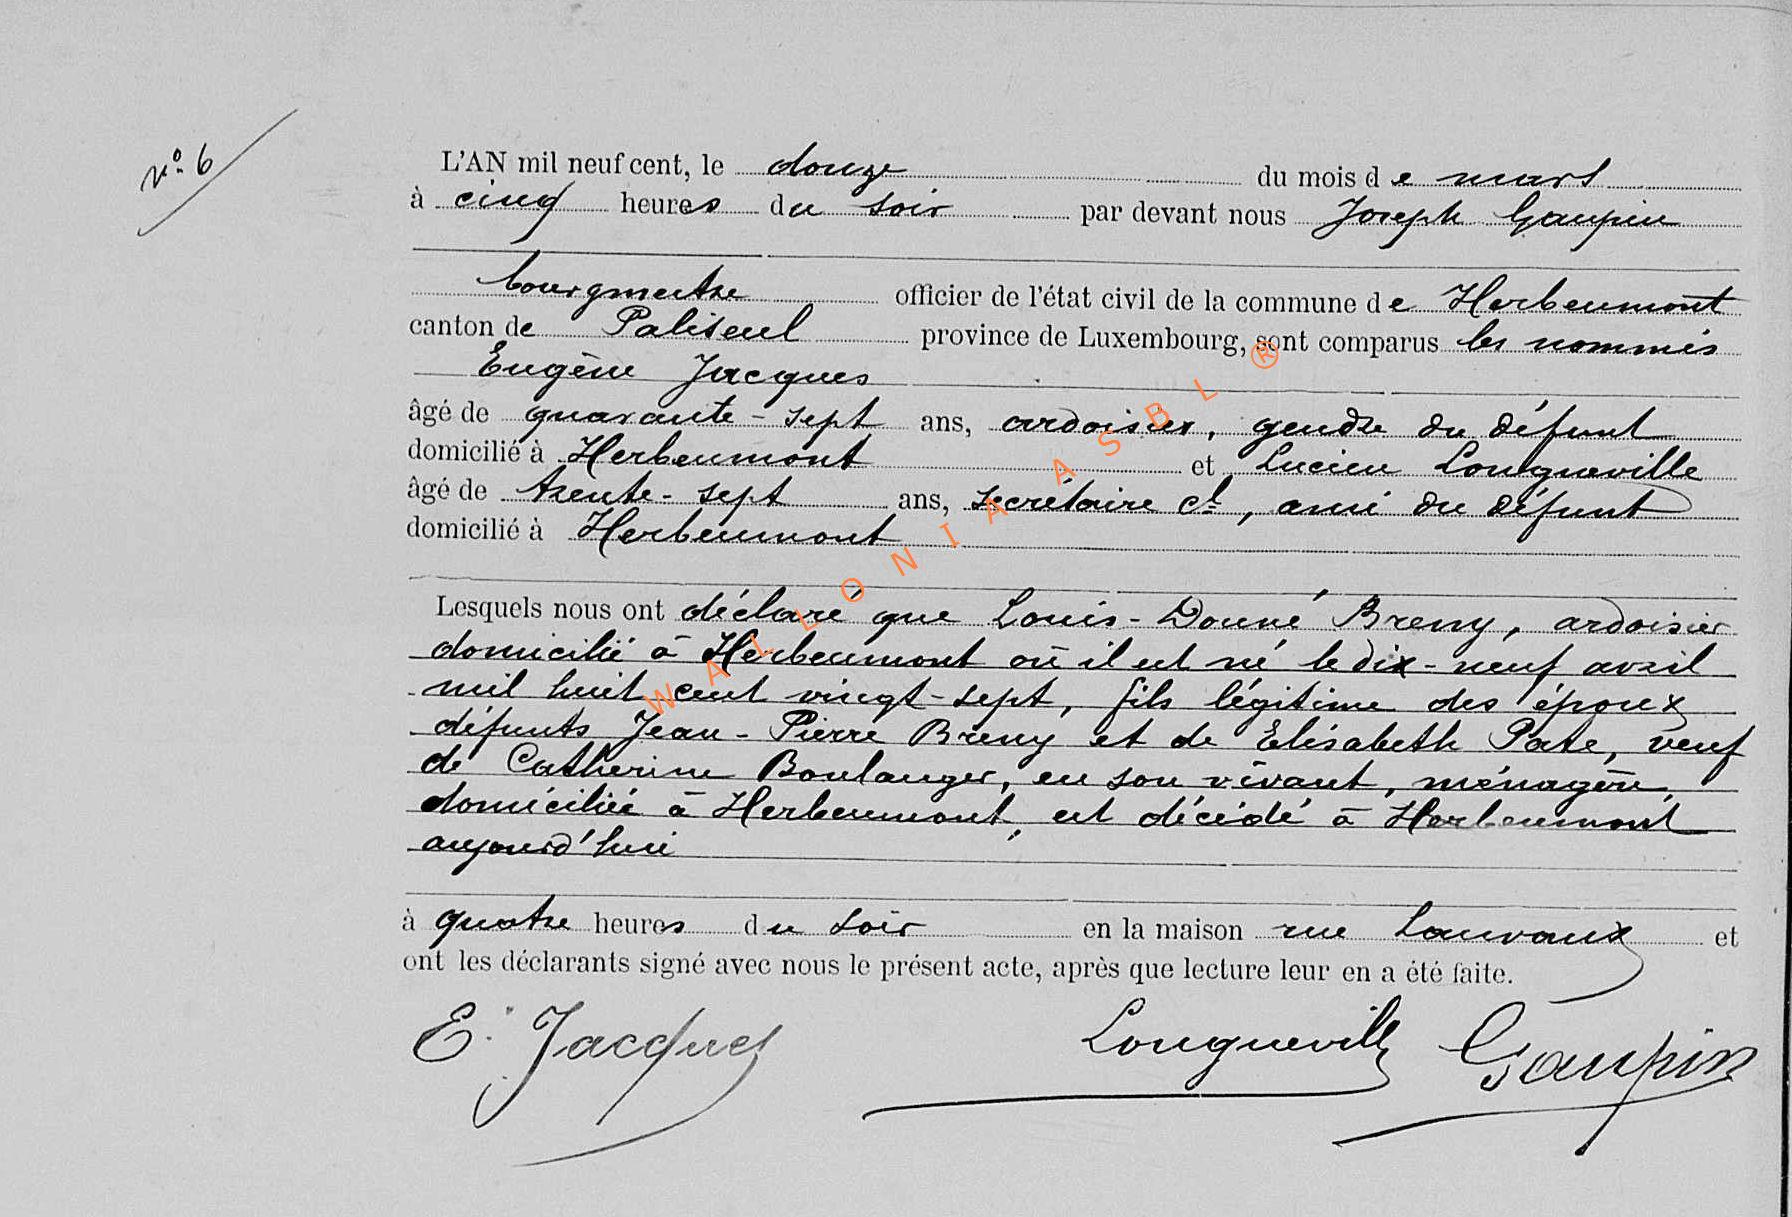 No. 6
L'AN mil neuf cent, le douze du mois de mars
à cinq heures du soir par devant nous Joseph Gaupin
bourgmestre officier de l'état civil de la commune de Herbeumont
canton de Paliseul province de Luxembourg, sont comparus les nommés
Eugène Jacques
âgé de quarante-sept ans, ardoisier, gendre du défunt
domicilié à Herbeumont et Lucien Longueville
âgé de trente-sept ans, secrétaire cl, ami du défunt
domicilié à Herbeumont
Lesquels nous ont déclaré que Louis-Donné Breny, ardoisier
domicilié à Herbeumont où il est né le dix-neuf avril
mil huit cent vingt-sept, fils légitime des époux
défunts Jean-Pierre Breny et de Elisabeth Pate, veuf
de Catherine Boulanger, en son vivant, ménagère,
domiciliée à Herbeumont, est décédé à Herbeumont
aujourd'hui
à quatre heures du soir en la maison rue Lauvaux et
ont les déclarants signé avec nous le présent acte, après que lecture leur en a été faite.
E. Jacques Longueville Gaupin
WALLONIA ASBL ®